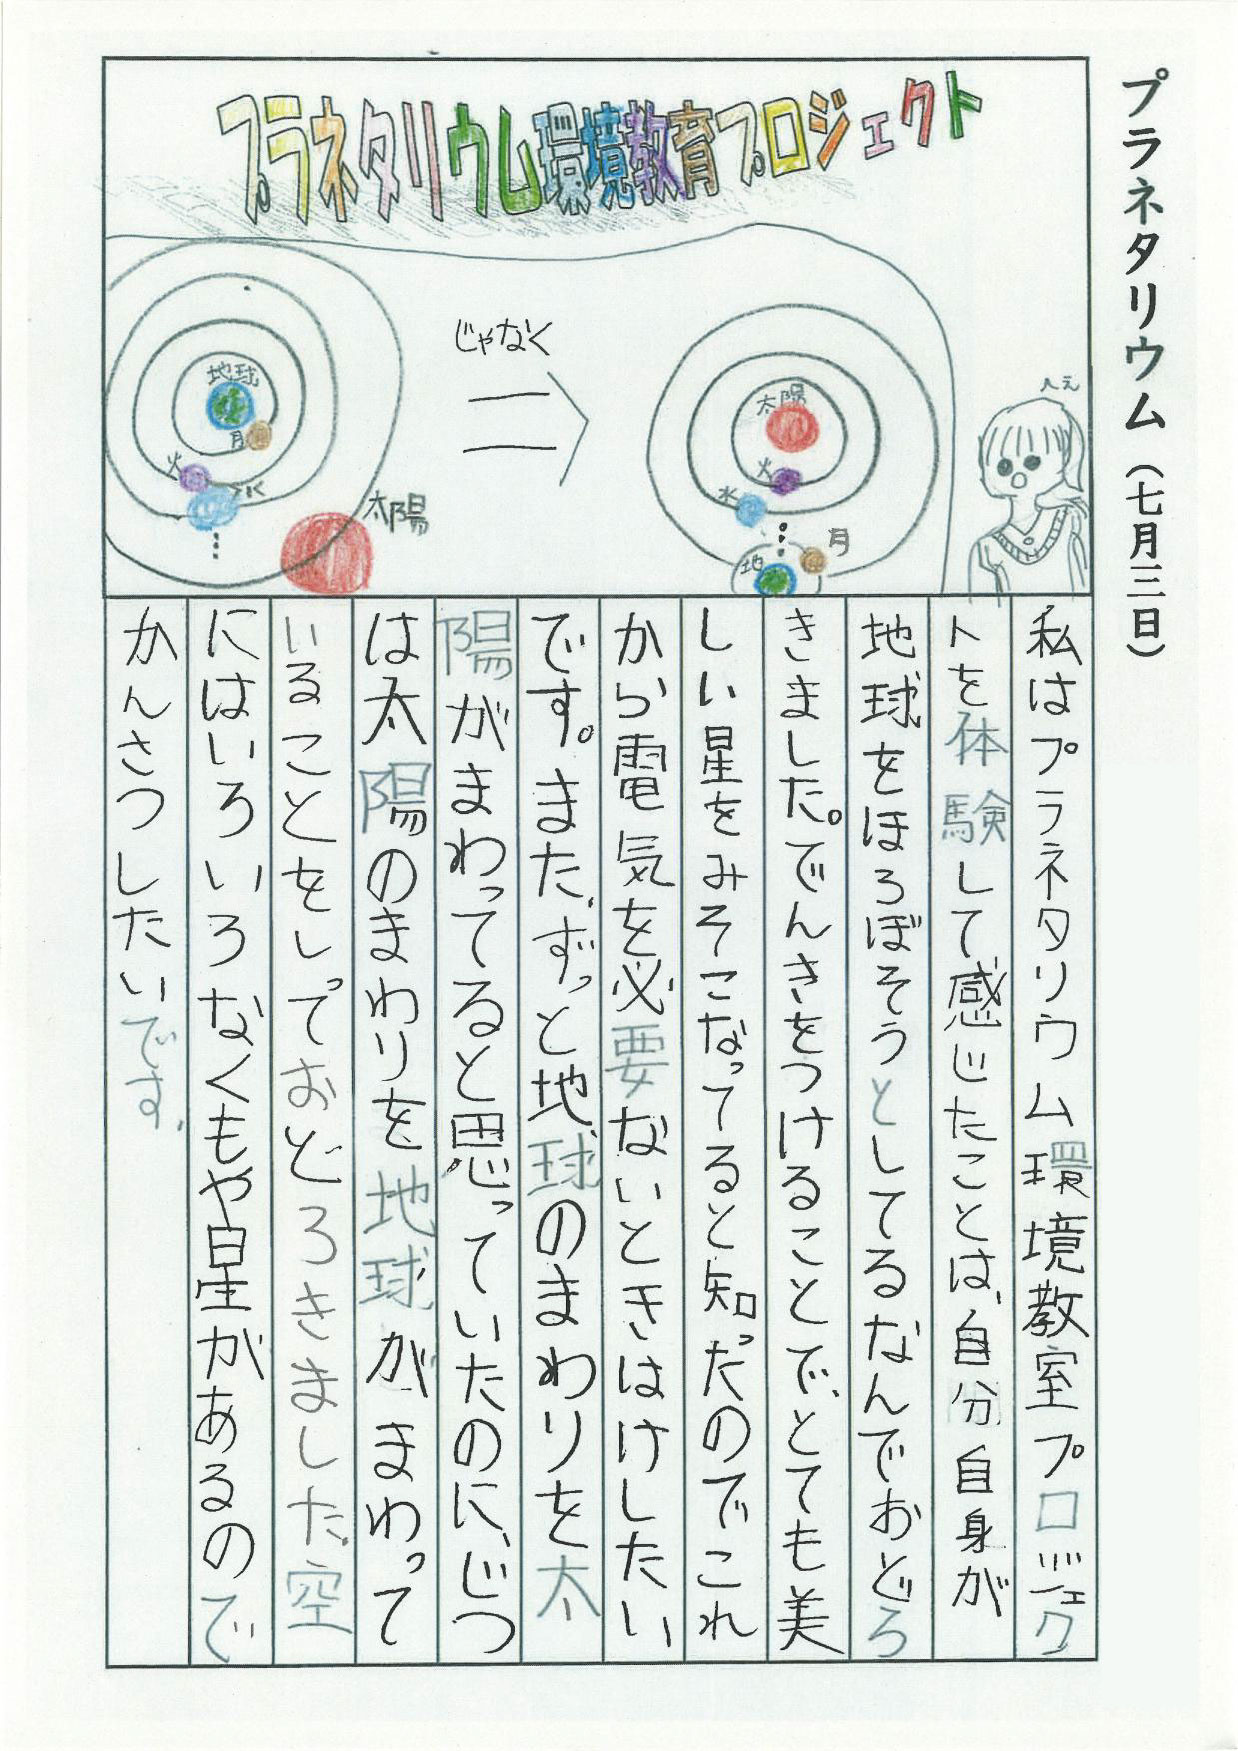 プラネタリウム（七月三日）
プラネタリウム環境教育プロジェクト
じゃなく
地球
月
火
水
太陽
太陽
火
水
地
月
へえ
私はプラネタリウム環境教室プロジェク
トを体験して感じたことは、自分自身が
地球をほろぼそうとしてるなんでおどろ
きました。でんきをつけることで、とても美
しい星をみそこなってると知ったのでこれ
から電気を必要ないときはけしたい
です。また、ずっと地球のまわりを太
陽がまわってると思っていたのに、じつ
は太陽のまわりを地球がまわって
いることをしっておどろきました。空
にはいろいろなくもや星があるので
かんさつしたいです。